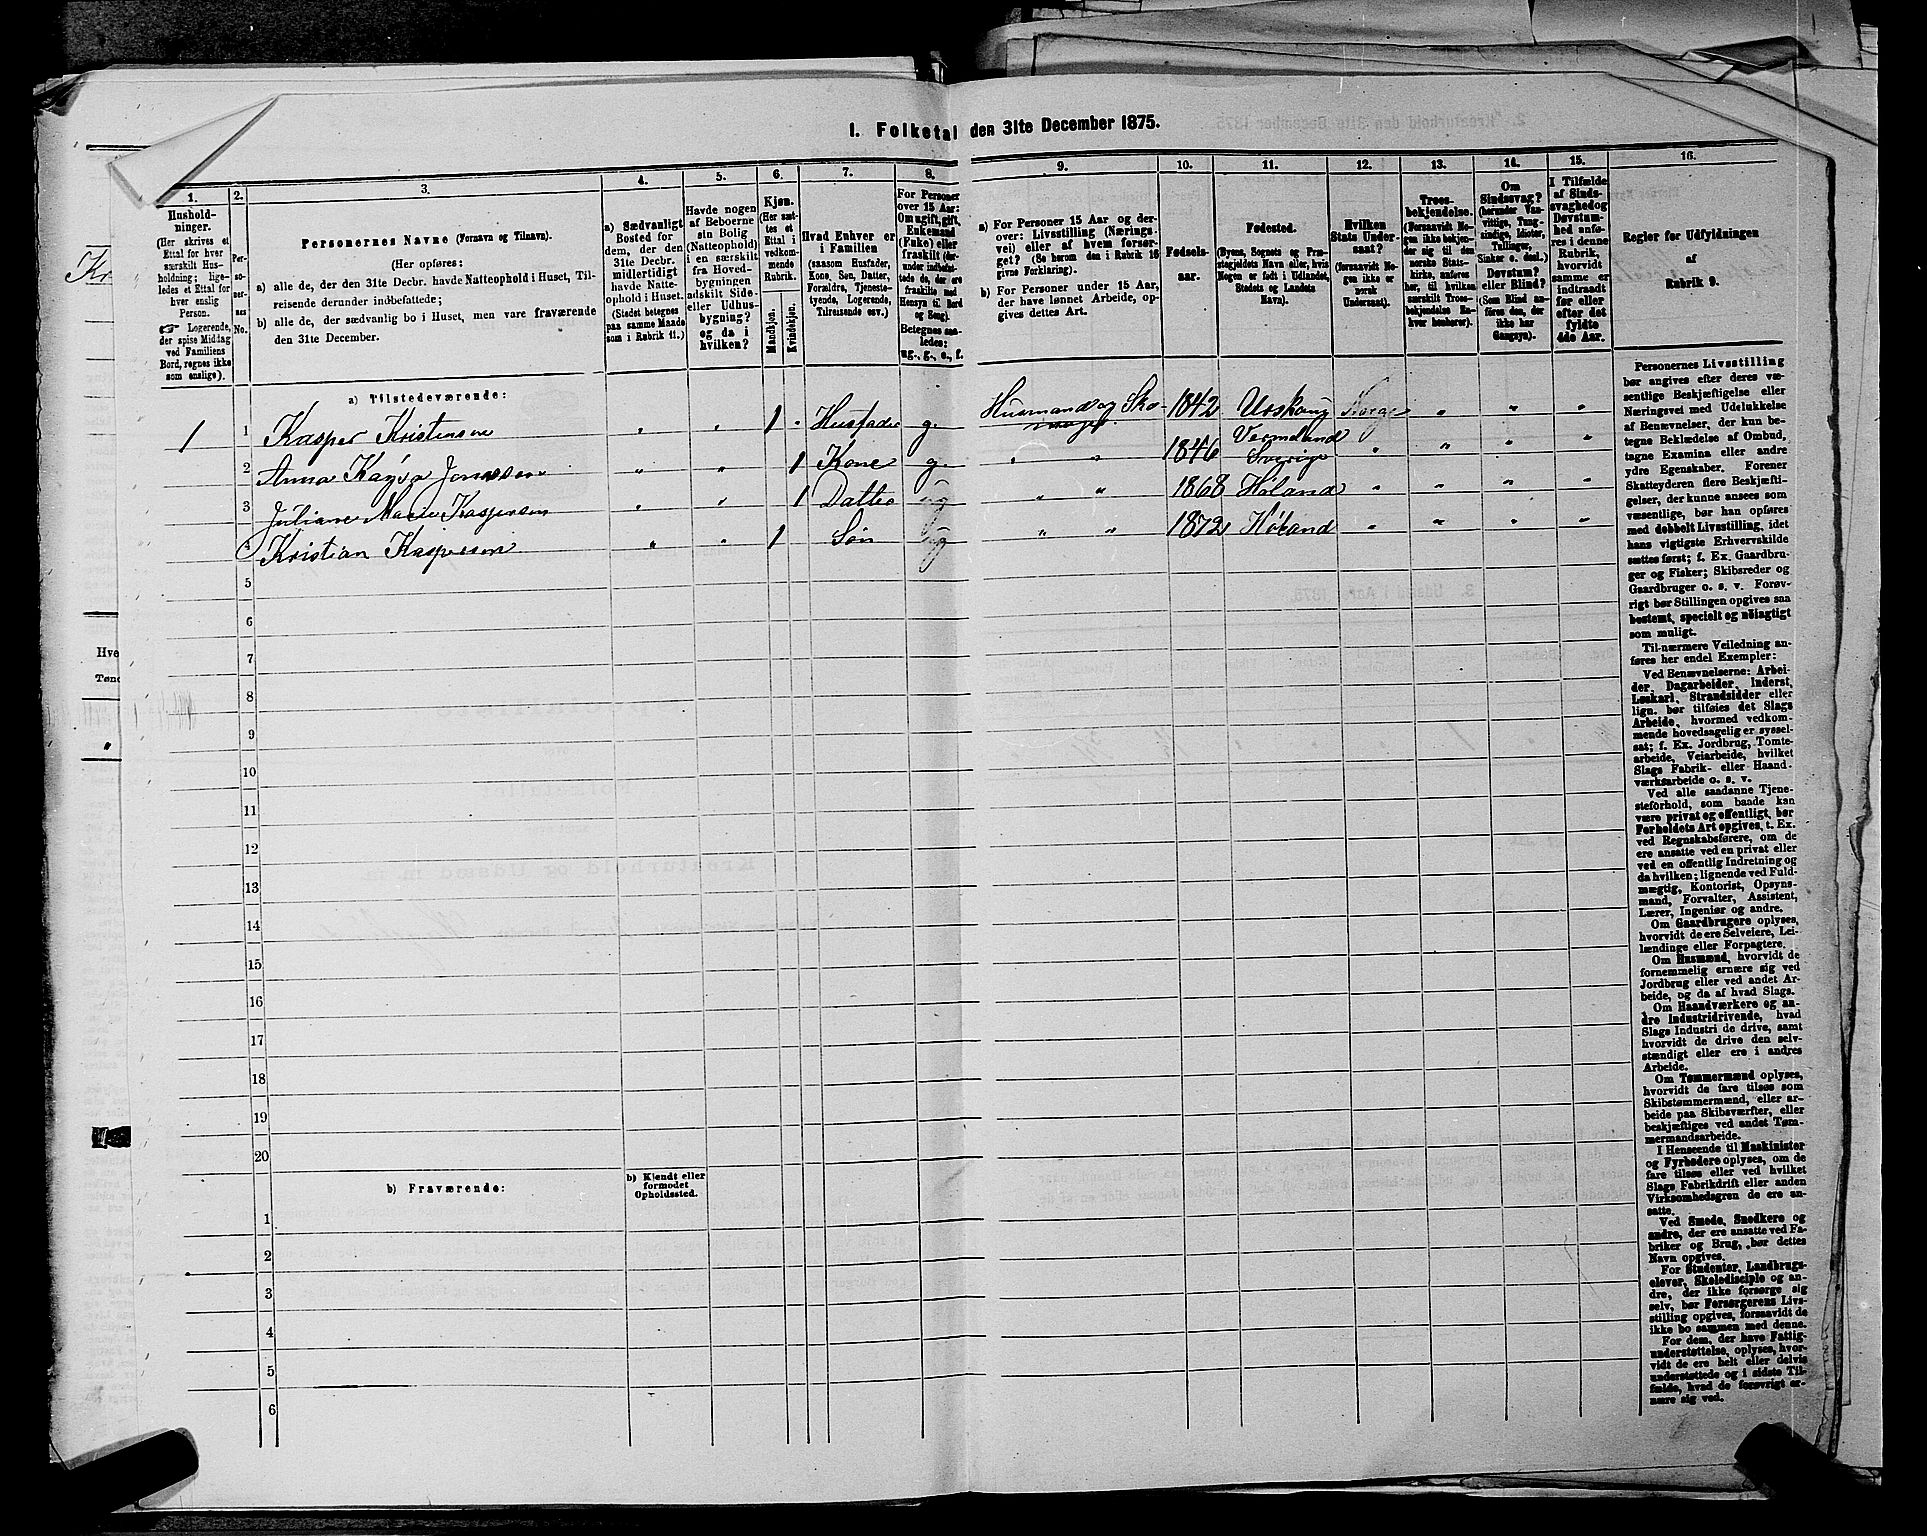 1. Folketal den 31te December 1875.
1.
2.
3.
4.
5.
6.
7.
8.
9.
10.
11.
12.
13.
14.
15.
16.
Hushold-
ninger.
(Her skrives et
Ettal for hver
særskilt Hus-
holdning; lige-
ledes et Ettal for
hver enslig
Person.
☞ Logerende,
der spise Middag
ved Familiens
Bord, regnes ikke
som enslige).
Per-
so-
ner-
nes
No.
Personernes Navne (Fornavn og Tilnavn).
(Her opføres:
a) alle de, der den 31te Decbr. havde Natteophold i Huset, Til-
reisende derunder indbefattede;
b) alle de, der sædvanlig bo i Huset, men vare fraværende
den 31te December.
a) Sædvanligt
Bosted for
dem, der den
31te Decbr.
midlertidigt
havde Natte-
ophold i Huset.
(Stedet betegnes
paa samme Maade
som i Rubrik 11.)
Havde nogen
af Beboerne
sin Bolig
(Natteophold)
i en særskilt
fra Hoved-
bygningen
adskilt Side-
eller Udhus-
bygning?
og da i
hvilken?
Kjøn.
(Her sæt-
tes et
Ettal i
vedkom-
mende
Rubrik.
Mandkjøn.
Kvindekjøn.
Hvad Enhver er
i Familien
(saasom Husfader,
Kone, Søn, Datter,
Forældre, Tjeneste-
tyende, Logerende,
Tilreisende osv.)
For Personer
over 15 Aar:
Om ugift, gift,
Enkemand
(Enke) eller
fraskilt (der-
under indbefat-
tede de, der ere
fraskilte med
Hensyn til Bord
og Seng).
Betegnes saa-
ledes:
ug., g., e., f.
a) For Personer 15 Aar og der-
over: Livsstilling (Nærings-
vei) eller af hvem forsør-
get? (Se herom den i Rubrik 16
givne Forklaring).
b) For Personer under 15 Aar,
der have lønnet Arbeide, op-
gives dettes Art.
Fødsels-
aar.
Fødested.
(Byens, Sognets og Præ-
stegjeldets Navn eller, hvis
Nogen er født i Udlandet,
Stedets og Landets
Navn).
Hvilken
Stats Under-
saat?
(forsaavidt No-
gen ikke er
norsk
Undersaat).
Troes-
bekjendelse.
(Forsaavidt No-
gen ikke bekjen-
der sig til den
norske Stats-
kirke, anføres
her, til hvilken
særskilt Troes-
bekjendelse En-
hver henhører).
Om
Sindssvag?
(herunder Van-
vittige, Tung-
sindige, Idioter,
Tullinger,
Sinker o. desl.)
Døvstum?
eller Blind?
(Som Blind an-
føres den, der
ikke har
Gangsyn).
I Tilfælde
af Sinds-
svaghed og
Døvstum-
hed anfø-
res i denne
Rubrik,
hvorvidt
samme er
indtraadt
før eller
efter det
fyldte
4de Aar.
Regler for Udfyldningen
af
Rubrik 9.
a) Tilstedeværende:
1 1 Kasper Kristensen " " 1 " Husfader g. Husmand og Sko-mager 1842 Urskoug Norge " " "
2 Anna Kaysa Jonssen " " 1 Kone g. " " 1846 Vermeland Sverige " " " "
3 Juliane Marie Kaspersen " " 1 Datter ug " " 1868 Høland " " " "
4 Kristian Kaspersen " " 1 Søn ug " " 1872 Høland " " " "
5
6
7
8
9
10
11
12
13
14
15
16
17
18
19
20
b) Fraværende:
b) Kjendt eller
formodet
Opholdssted.
1
2
3
4
5
6
Personernes Livsstilling
bør angives efter deres væ-
sentlige Beskjæftigelse eller
Næringsvei med Udelukkelse
af Benævnelser, der kun be-
tegne Beklædelse af Ombud,
tagne Examina eller andre
ydre Egenskaber. Forener
Skatteyderen flere Beskjæfti-
gelser, der kunne ansees som
væsentlige, bør han opføres
med dobbelt Livsstilling, idet
hans vigtigste Erhvervskilde
sættes først; f. Ex. Gaardbru-
ger og Fisker; Skibsreder og
Gaardbruger o. s. v. Forøv-
rigt bør Stillingen opgives saa
bestemt, specielt og nøiagtigt
som muligt.
Til nærmere Veiledning an-
føres her endel Exempler:
Ved Benævnelserne: Arbei-
der, Dagarbeider, Inderst,
Løskarl, Strandsidder eller
lign. bør tilføies det Slags
Arbeide, hvormed vedkom-
mende hovedsagelig er syssel-
sat; f. Ex. Jordbrug, Tomte-
arbeide, Veiarbeide, hvilket
Slags Fabrik- eller Haand-
værksarbeide o. s. v.
Ved alle saadanne Tjene-
steforhold, som baade kan
være privat og offentligt, bør
Forholdets Art opgives, t. Ex.
ved Regnskabsførere, om de
ere ansatte ved en privat eller
ved en offentlig Indretning og
da hvilken; lignende ved Fuld-
mægtig, Kontorist, Opsyns-
mand, Forvalter, Assistent,
Lærer, Ingeniør og andre.
Om Gaardbrugere oplyses,
hvorvidt de ere Selveiere, Lei-
lændinge eller Forpagtere.
Om Husmænd, hvorvidt de
fornemmelig ernære sig ved
Jordbrug eller ved andet Ar-
beide, og da af hvad Slags.
Om Haandværkere og an-
dre Industridrivende, hvad
Slags Industri de drive, samt
hvorvidt de drive den selv-
stændigt eller ere i andres
Arbeide.
Om Tømmermænd oplyses,
hvorvidt de fare tilsøs som
Skibstømmermænd, eller ar-
beide paa Skibsværfter, eller
beskjæftiges ved andet Tøm-
mermandsarbeide.
I Henseende til Maskinister
og Fyrbødere oplyses, om de
fare tilsøs eller ved hvilket
Slags Fabrikdrift eller anden
Virksomhedsgren de ere an-
satte.
Ved Smede, Snedkere og
andre, der ere ansatte ved Fa-
briker og Brug, bør dettes
Navn opgives.
For Studenter, Landbrugs-
elever, Skoledisciple og an-
dre, der ikke forsørge sig
selv, bør Forsørgerens Livs-
stilling opgives, forsaavidt de
ikke bo sammen med denne.
For dem, der have Fattig-
understøttelse, oplyses, hvor-
vidt de ere helt eller delvis
understøttede og i sidste Til-
fælde, hvad de forøvrigt er-
nære sig ved.